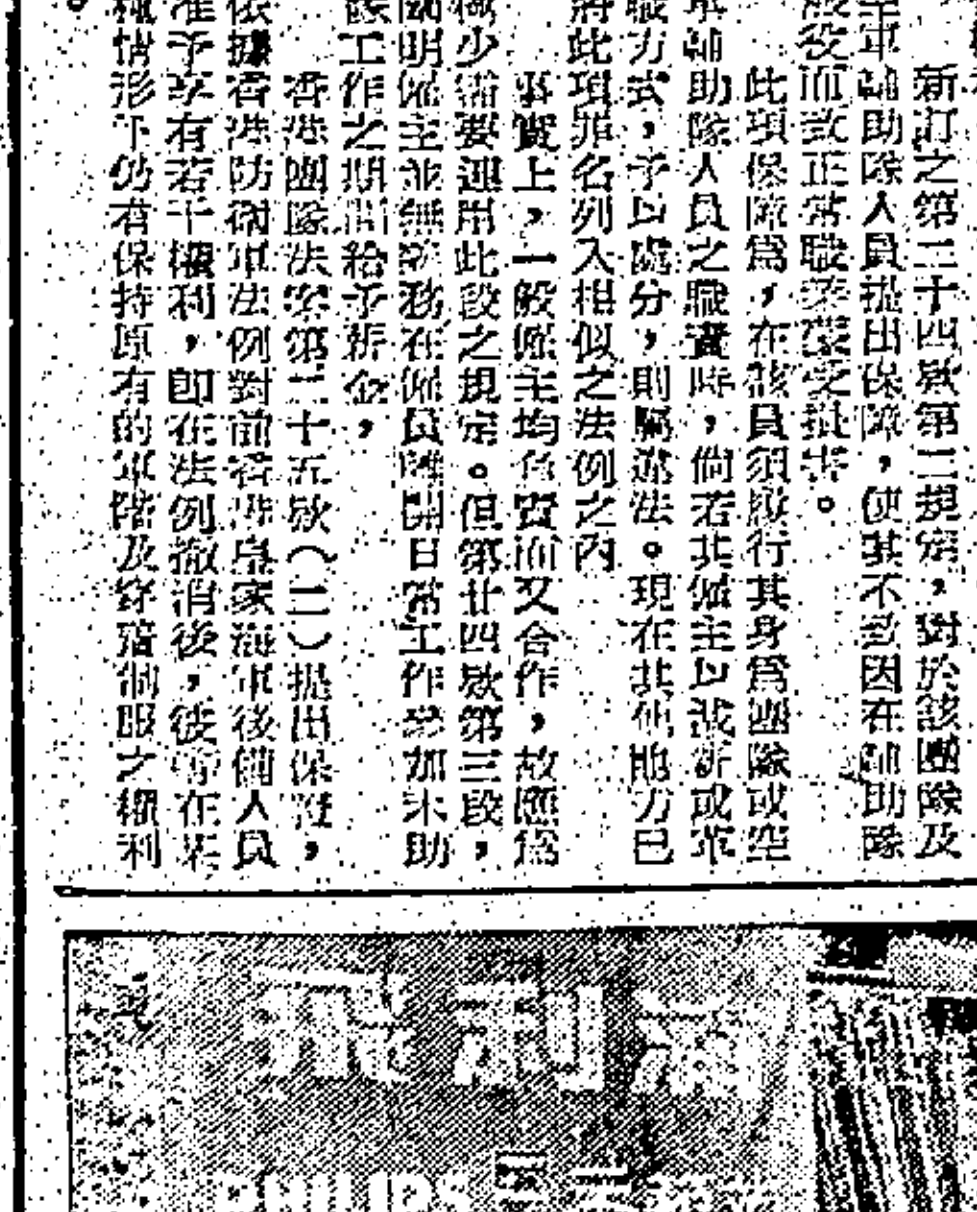 新訂之第二十四欵第二規定，對於該團隊及
空軍輔助隊人員提出保障，使其不致因在輔助隊
服役而致正常職業蒙受損害。
此項保障爲，在該員須履行其身爲團隊或空
軍輔助隊人員之職責時，倘若其僱主以裁訴或革
職方式，予以處分，則屬違法。現在其他地方已
將此項罪名列入相似之法例之內
事實上，一般僱主均負責而又合作，故應爲
極少需要運用此段之規定。但第廿四欵第三段，
闡明僱主並無義務在僱員離開日常工作參加未助
隊工作之期間給予薪金，
香港團隊法案第二十五欵（二）提出保證，
依據香港防衛軍法例對前香港皇家海軍後備人員
准予享有若干權利，即在法例撤消後，彼等在某
種情形下仍有保持原有的軍階及穿着制服之權利
。
飛利浦
PHILIPS